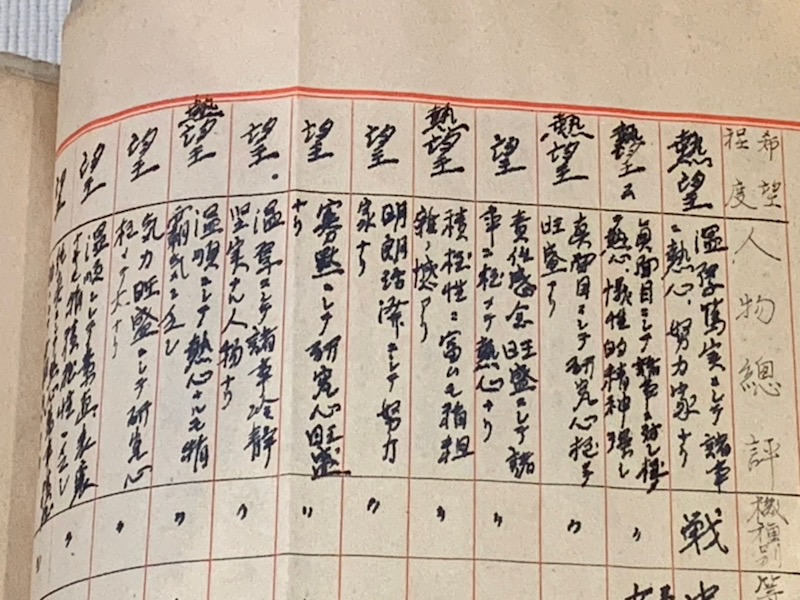 希望
程度
人物總評
機種別等
熱望
温厚篤実ニシテ諸事
ニ熱心、努力家ナリ
戦
熱望
真面目ニシテ諸事
熱心、犠牲的精神強シ
〃
熱望
真面目ニシテ研究心極
旺盛ナリ
〃
望
責任感念旺盛ニシテ諸
事ニ極メテ熱心ナリ
〃
熱望
積極性ニ富ムモ稍粗
雑ノ感アリ
〃
望
明朗活溌ニシテ努力
家ナリ
〃
望
寡黙ニシテ研究心旺盛
ナリ
〃
望
温厚ニシテ諸事冷静
堅実ナル人物ナリ
〃
熱望
温順ニシテ熱心ナルモ稍
覇気ニ乏シ
〃
望
気力旺盛ニシテ研究心
極メテ大ナリ
〃
望
温順ニシテ
積極性ニ乏シ
〃
望